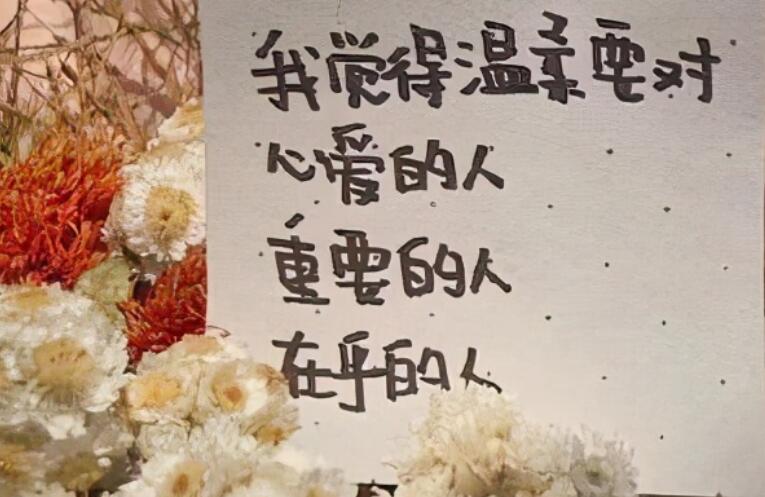 我觉得温柔要对
心爱的人
重要的人
在乎的人